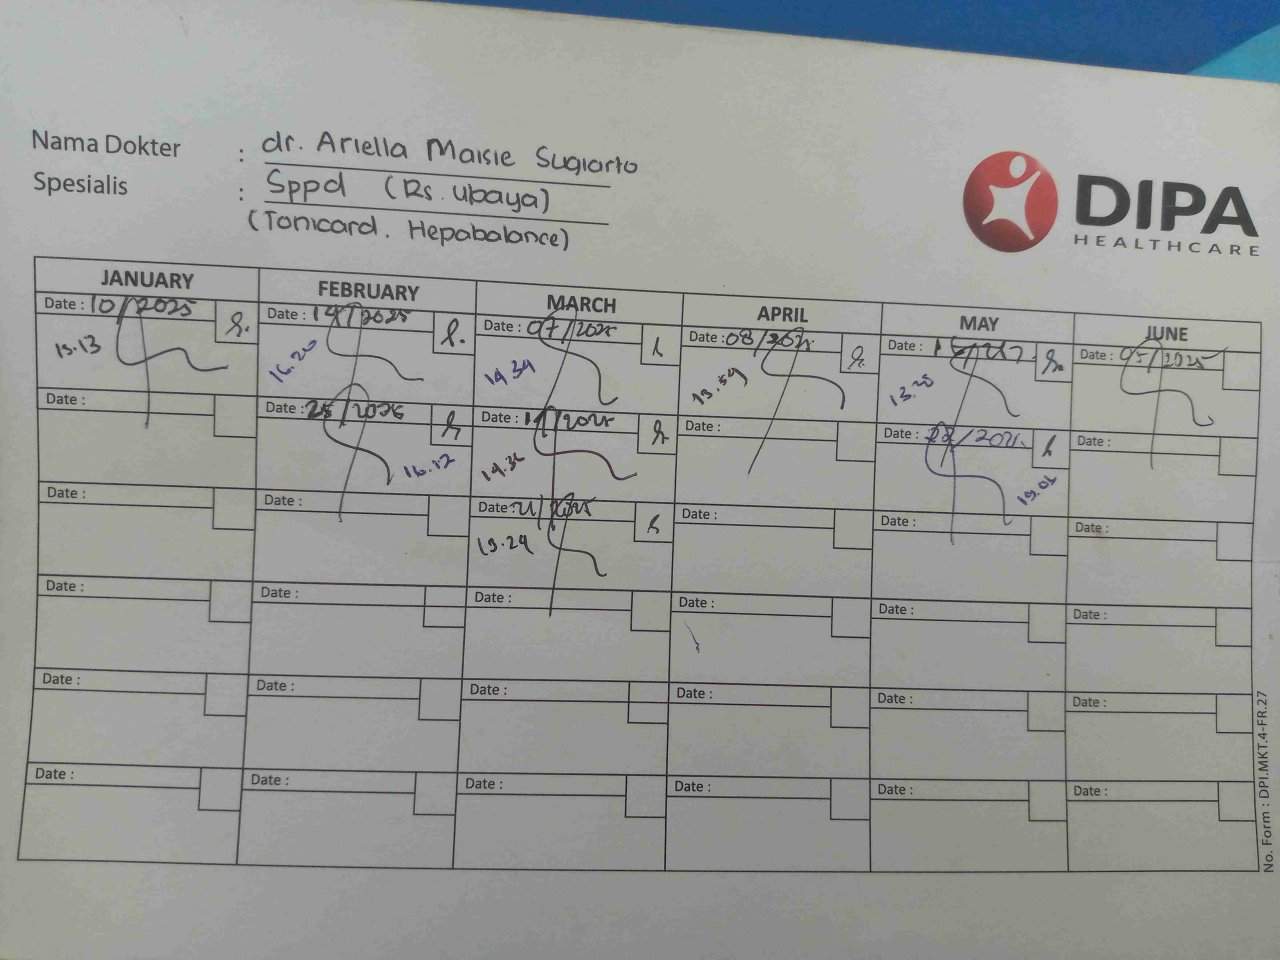 Nama Dokter : dr. Ariella Maisie Sugiarto
Spesialis : Sppd (Rs. Ubaya)
(Tonicard. Hepabalance)
DIPA
HEALTHCARE
JANUARY FEBRUARY MARCH APRIL MAY JUNE
Date : 10/2025 Date : 14/2025 Date : 07/2025 Date : 08/2025 Date : Date : 05/2025
15.13 16.20 14.34 13.59 13.35
Date : Date : 25/2025 Date : 11/2025 Date : Date : 22/2025 Date :
16.12 14.36 15.01
Date : Date : Date : 21/2025 Date : Date : Date :
15.24
Date : Date : Date : Date : Date : Date :
Date : Date : Date : Date : Date : Date :
Date : Date : Date : Date : Date : Date :
No. Form : DPI.MKT.4-FR.27